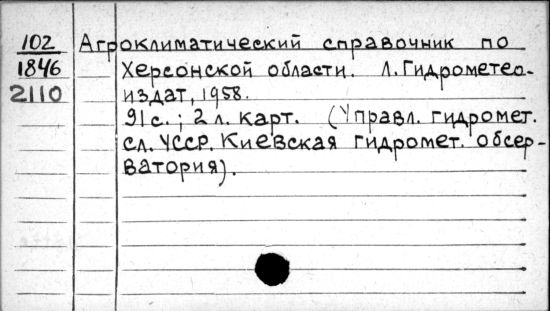 102 Агроклиматический справочник по
1846 Херсонской области. Л. Гидрометео-
2110 издат, 1958.
91 с.; 2 л. карт. (Управл. гидромет.
сл. УССР. Киевская гидромет. обсер-
ватория).